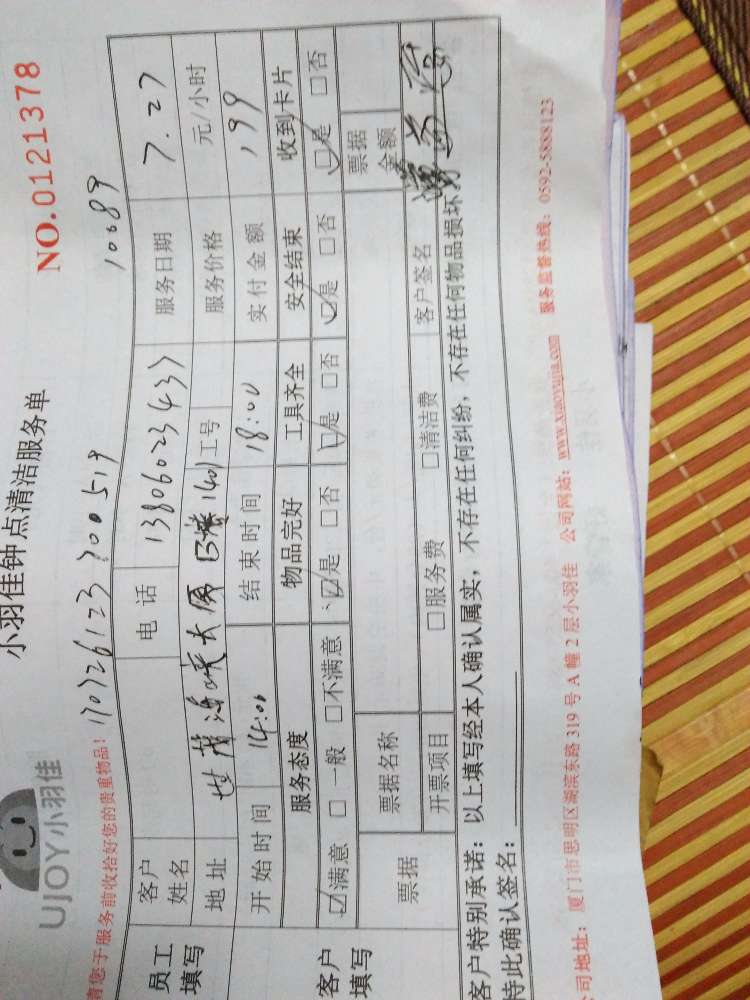 小羽佳钟点清洁服务单
UJOY小羽佳
NO.0121378
请您于服务前收拾好您的贵重物品! 170726123200519 10689
员工填写 客户姓名 电话 13806023437 服务日期 7.27
地址 世茂海峡大厦B楼1401 工号 服务价格 元/小时
开始时间 14:00 结束时间 18:00 实付金额 199
客户填写 服务态度 物品完好 工具齐全 安全结束 收到卡片
☑满意 □一般 □不满意 ☑是 □否 ☑是 □否 ☑是 □否 ☑是 □否
票据 票据名称 票据金额
开票项目 □服务费 □清洁费 客户签名
客户特别承诺：以上填写经本人确认属实，不存在任何纠纷，不存在任何物品损坏
特此确认签名：
公司地址：厦门市思明区湖滨东路319号A幢2层小羽佳 公司网站：www.xiaoyujia.com 服务监督热线：0592-5888123